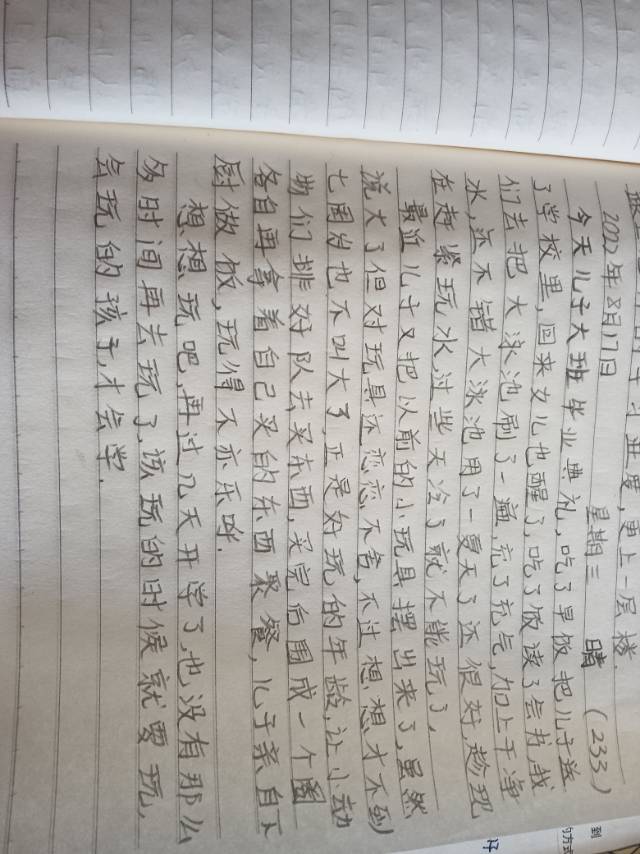 更上一层楼.
2022年8月17日 星期三 晴 (233)
今天儿子大班毕业典礼,吃了早饭把儿子送
了学校里,回来女儿也醒了,吃了饭读了会书,我
们去把大泳池刷了一遍,充了充气,加上干净
水,还不错大泳池用了一夏天了还很好,趁现
在赶紧玩水,过些天冷了就不能玩了,
最近儿子又把以前的小玩具摆出来了,虽然
说大了但对玩具还恋恋不舍,不过想想才不到
七周岁也不叫大了,正是好玩的年龄,让小动
物们排好队去买东西,买完后围成一个圈
各自再拿着自己买的东西聚餐,儿子亲自下
厨做饭,玩得不亦乐呼.
想想玩吧,再过几天开学了,也没有那么
多时间再去玩了,该玩的时候就要玩,
会玩的孩子,才会学.
到
的方式